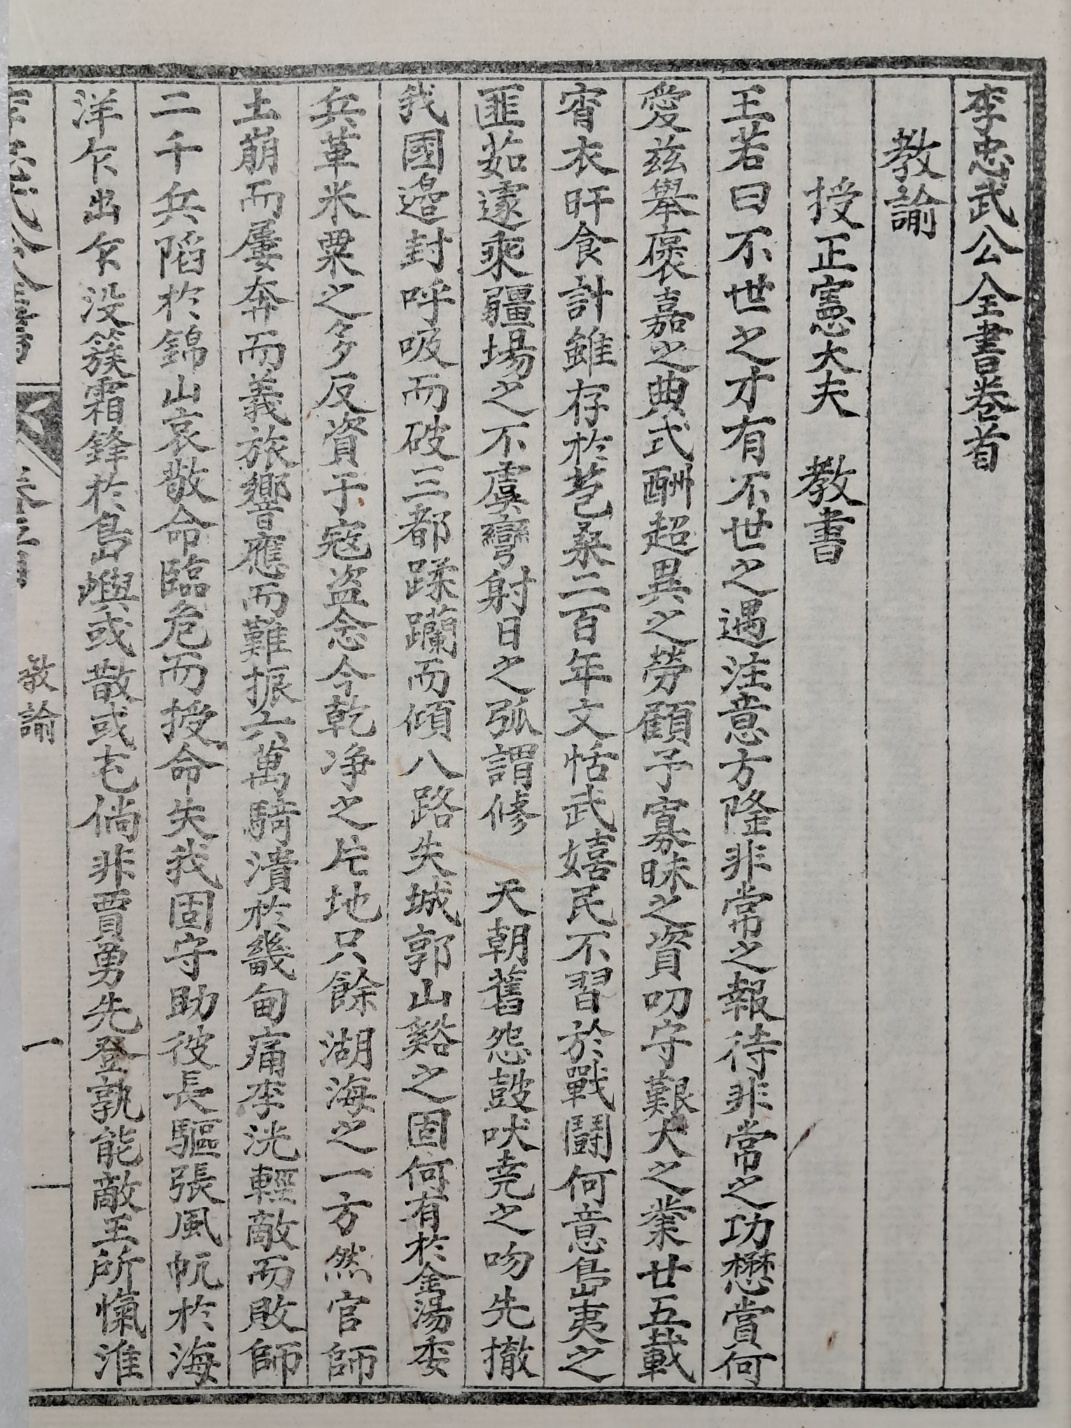 李忠武公全書卷首
教諭
授正憲大夫　教書
王若曰不世之才有不世之遇注意方隆非常之報待非常之功懋賞何
愛玆舉褒嘉之典式酬超異之勞顧予寡昧之資叨守艱大之業廿五載
宵衣旰食計雖存於苞桑二百年文恬武嬉民不習於戰鬪何意島夷之
匪茹遽乘疆埸之不虞彎射日之弧謂修　天朝舊怨鼓吠堯之吻先撤
我國邊封呼吸而破三都蹂躪而傾八路失城郭山谿之固何有於金湯委
兵革米粟之多反資于寇盜念今乾淨之片地只餘湖海之一方然官師
土崩而屢奔而義旅響應而難振六萬騎潰於畿甸痛李洸輕敵而敗師
二千兵陷於錦山哀敬命臨危而授命失我固守助彼長驅張風帆於海
洋乍出乍沒簇霜鋒於島嶼或散或屯倘非賈勇先登孰能敵王所愾淮
教諭
一